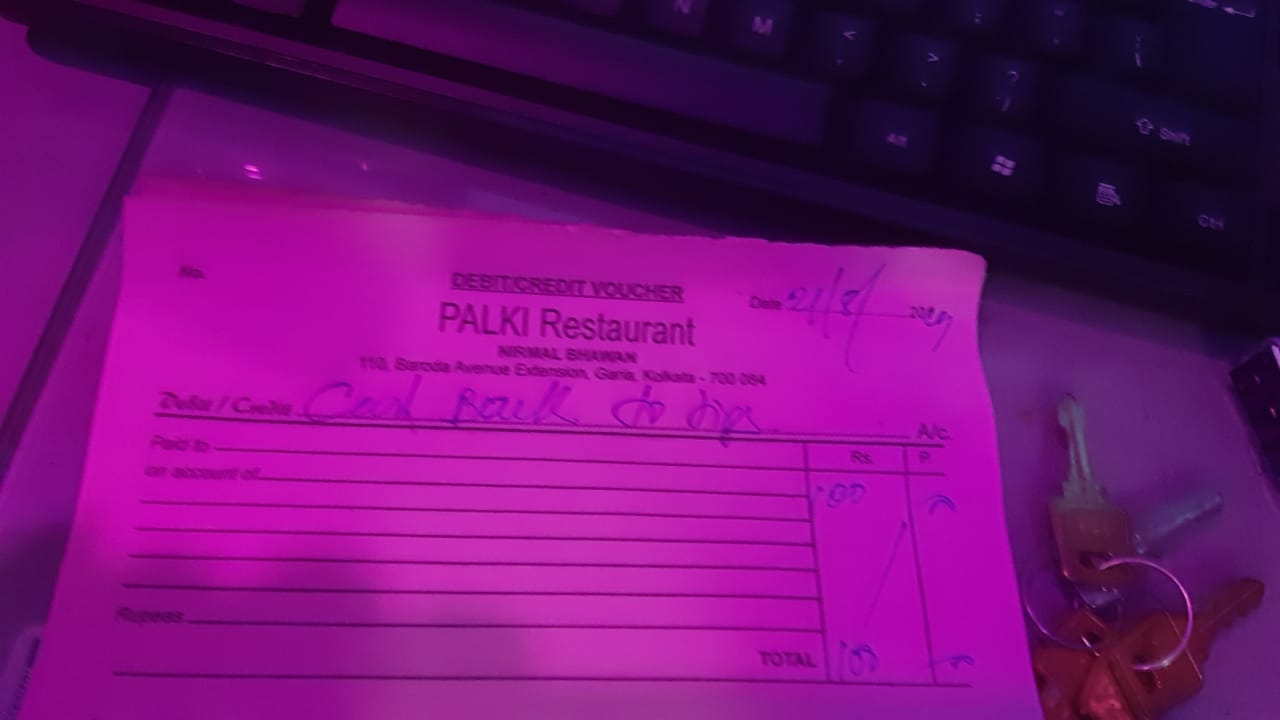 N M < > ? /
Alt Shift
Ctrl
No.
DEBIT/CREDIT VOUCHER
Date 21/8/ 20
PALKI Restaurant
NIRMAL BHAWAN
110, Baroda Avenue Extension, Garia, Kolkata - 700 084
Debit / Credit Cash Back to tips A/c.
Paid to Rs. P.
on account of 100
Rupees
TOTAL 100